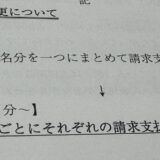 記
更について
名分を一つにまとめて請求支
↓
分～】
ごとにそれぞれの請求支払